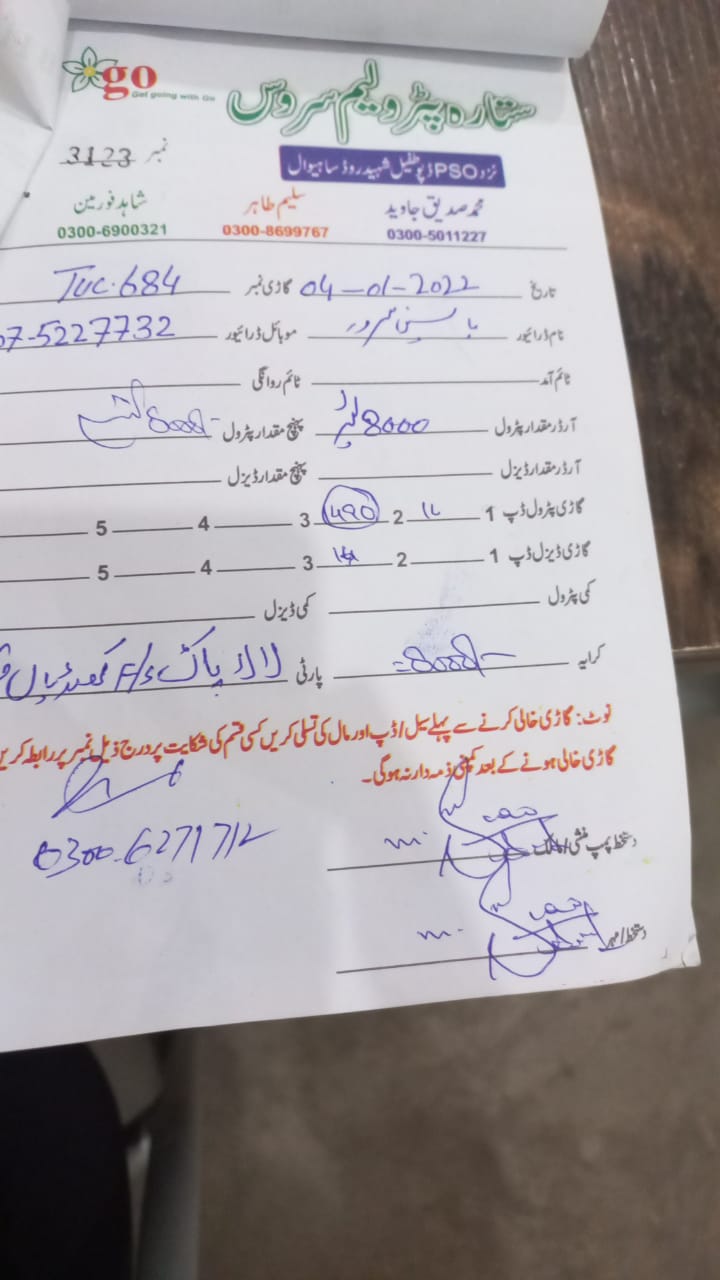 go
Get going with Go
ستارہ پٹرولیم سروس
نمبر 3123
نزد PSO ڈپو طفیل شہید روڈ ساہیوال
محمد صدیق جاوید سلیم طاہر شاہد فورمین
0300-5011227 0300-8699767 0300-6900321
تاریخ 04-01-2022 گاڑی نمبر TUC.684
نام ڈرائیور موبائل ڈرائیور 07-5227732
ٹائم آمد ٹائم روانگی
آرڈر مقدار پٹرول 8000 لیٹر پہنچ مقدار پٹرول 8000
آرڈر مقدار ڈیزل پہنچ مقدار ڈیزل
گاڑی پٹرول ڈپ 1 2 490 3 4 5
گاڑی ڈیزل ڈپ 1 2 3 4 5
کمی پٹرول کمی ڈیزل
کرایہ پارٹی لالا پاک F/S
نوٹ: گاڑی خالی کرنے سے پہلے سیل / ڈپ اور مال کی تسلی کریں کسی قسم کی شکایت پر درج ذیل نمبر پر رابطہ کریں
گاڑی خالی ہونے کے بعد کمپنی ذمہ دار نہ ہوگی۔
0300-6271712
دستخط پمپ منشی /
دستخط / مہر